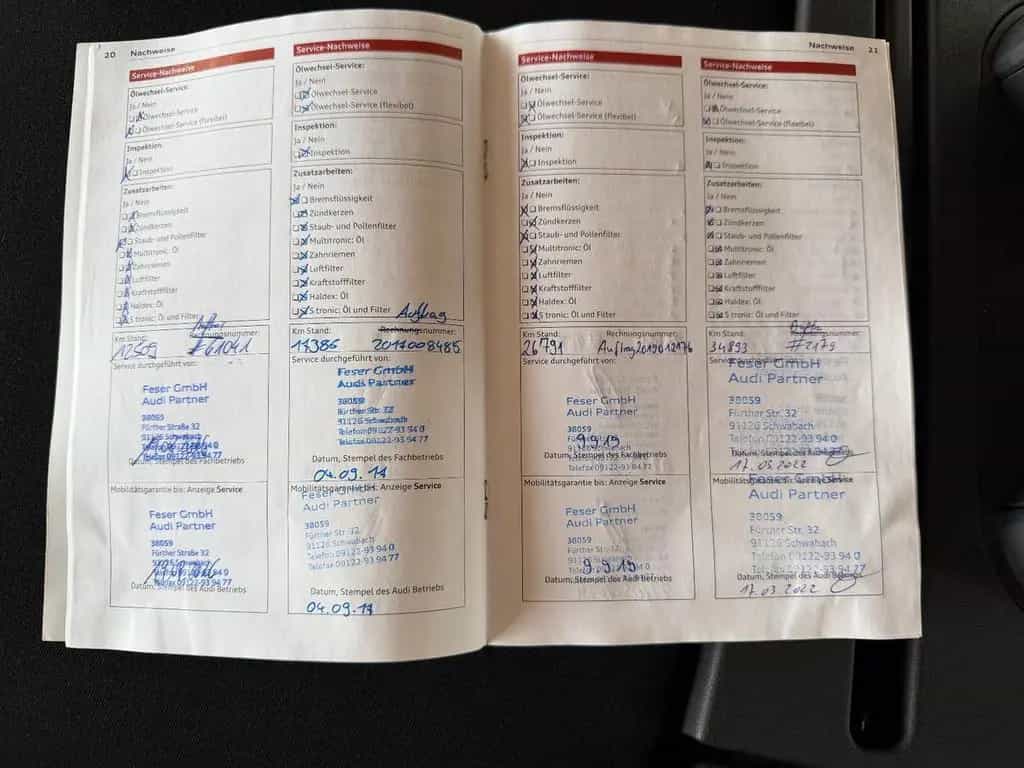 20 Nachweise
Service-Nachweise
Ölwechsel-Service:
Ja / Nein
Ölwechsel-Service
Ölwechsel-Service (flexibel)
Inspektion:
Ja / Nein
Inspektion
Zusatzarbeiten:
Ja / Nein
Bremsflüssigkeit
Zündkerzen
Staub- und Pollenfilter
Multitronic: Öl
Zahnriemen
Luftfilter
Kraftstofffilter
Haldex: Öl
S tronic: Öl und Filter
Km Stand:
12509 #61041
Service durchgeführt von:
Feser GmbH
Audi Partner
38059
Fürther Straße 32
91126 Schwabach
Telefon 09122-93 94 0
Datum, Stempel des Fachbetriebs
Mobilitätsgarantie bis: Anzeige Service
Feser GmbH
Audi Partner
38059
Fürther Straße 32
91126 Schwabach
Telefon 09122-93 94 0
Telefax 09122-93 94 77
Datum, Stempel des Audi Betriebs
Service-Nachweise
Ölwechsel-Service:
Ja / Nein
Ölwechsel-Service
Ölwechsel-Service (flexibel)
Inspektion:
Ja / Nein
Inspektion
Zusatzarbeiten:
Ja / Nein
Bremsflüssigkeit
Zündkerzen
Staub- und Pollenfilter
Multitronic: Öl
Zahnriemen
Luftfilter
Kraftstofffilter
Haldex: Öl
S tronic: Öl und Filter
Auftrag
Km Stand: Rechnungsnummer:
2017008485
Service durchgeführt von:
Feser GmbH
Audi Partner
38059
Fürther Str. 32
91126 Schwabach
Telefon 09122-93 94 0
Telefax 09122-93 94 77
Datum, Stempel des Fachbetriebs
04.09.17
Mobilitätsgarantie bis: Anzeige Service
Feser GmbH
Audi Partner
38059
Fürther Str. 32
91126 Schwabach
Telefon 09122-93 94 0
Telefax 09122-93 94 77
Datum, Stempel des Audi Betriebs
04.09.17
Nachweise 21
Service-Nachweise
Ölwechsel-Service:
Ja / Nein
Ölwechsel-Service
Ölwechsel-Service (flexibel)
Inspektion:
Ja / Nein
Inspektion
Zusatzarbeiten:
Ja / Nein
Bremsflüssigkeit
Zündkerzen
Staub- und Pollenfilter
Multitronic: Öl
Zahnriemen
Luftfilter
Kraftstofffilter
Haldex: Öl
S tronic: Öl und Filter
Km Stand: Rechnungsnummer:
26791 Auftrag 2019012176
Service durchgeführt von:
Feser GmbH
Audi Partner
38059
9.9.19
Datum, Stempel des Fachbetriebs
Telefax 09122-93 94 77
Mobilitätsgarantie bis: Anzeige Service
Feser GmbH
Audi Partner
38059
Fürther Str. 32
9.9.19
Datum, Stempel des Audi Betriebs
Service-Nachweise
Ölwechsel-Service:
Ja / Nein
Ölwechsel-Service
Ölwechsel-Service (flexibel)
Inspektion:
Ja / Nein
Inspektion
Zusatzarbeiten:
Ja / Nein
Bremsflüssigkeit
Zündkerzen
Staub- und Pollenfilter
Multitronic: Öl
Zahnriemen
Luftfilter
Kraftstofffilter
Haldex: Öl
S tronic: Öl und Filter
Km Stand:
34893 #2179
Feser GmbH
Audi Partner
38059
Fürther Str. 32
91126 Schwabach
Telefon 09122-93 94 0
Datum, Stempel des Fachbetriebs
17.03.2022
Mobilitätsgarantie bis: Anzeige Service
Feser GmbH
Audi Partner
38059
Fürther Str. 32
91126 Schwabach
Telefon 09122-93 94 0
Telefax 09122-93 94 77
Datum, Stempel des Audi Betriebs
17.03.2022